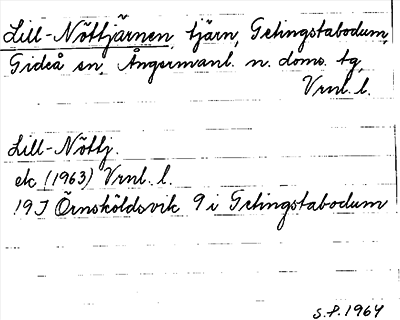 Lill-Nöttjärnen, tjärn, Getingstabodum,
Gideå sn, Ångermanl. n. doms. tg,
Vrnl. l.
Lill-Nöttj.
ek (1963) Vrnl. l.
19J Örnsköldsvik 9 i Getingstabodum
S.P. 1964